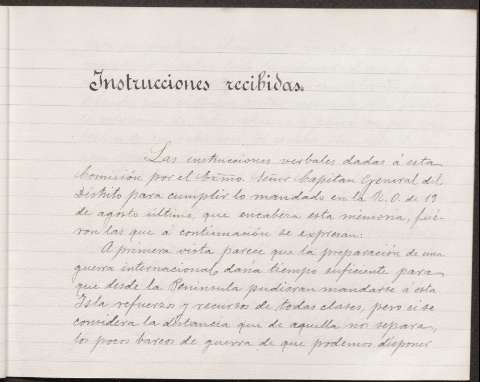 Instrucciones recibidas.
Las instrucciones verbales dadas á esta
Comisión por el Excmo. Señor Capitan General del
Distrito para cumplir lo mandado en la R. O. de 19
de agosto último que encabeza esta memoria, fue-
ron las que á continuación se expresan:
A primera vista parece que la preparación de una
guerra internacional, daria tiempo suficiente para
que desde la Peninsula pudieran mandarse á esta
Isla refuerzos y recursos de todas clases, pero si se
considera la distancia que de aquella nos separa,
los pocos barcos de guerra de que podemos disponer